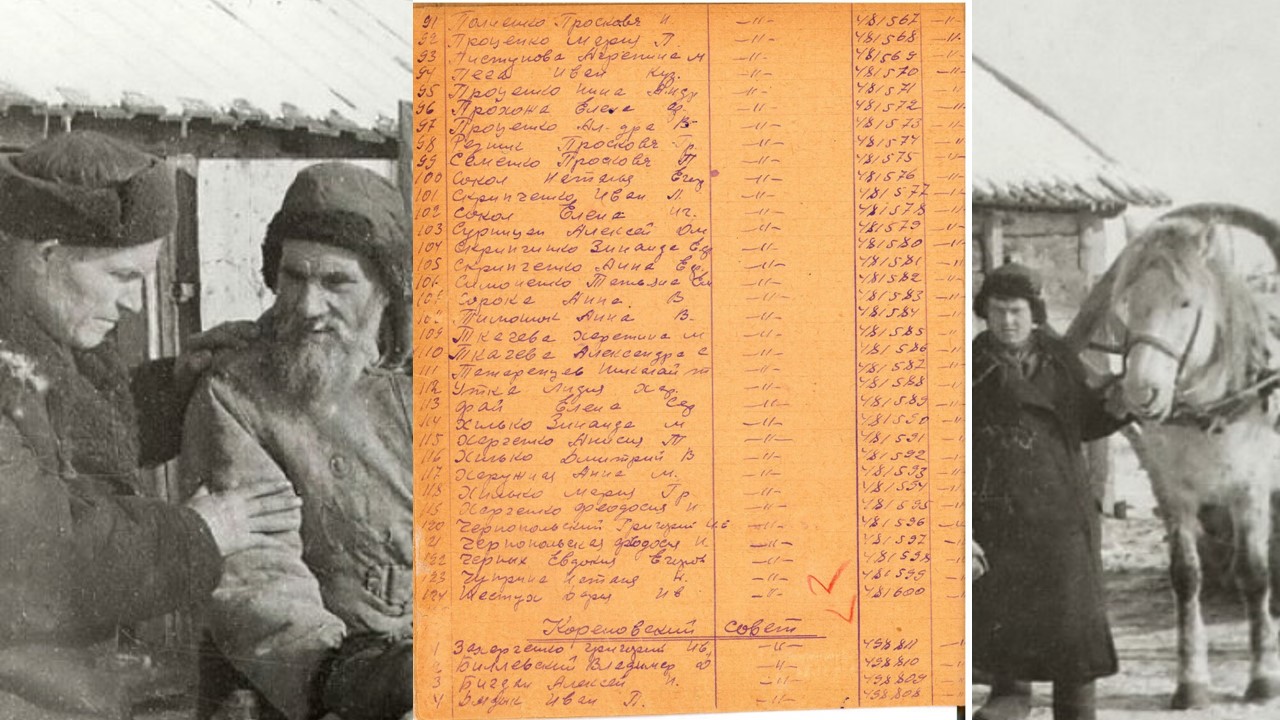 91 Толченко Просковя И. —//— 481567 —//—
92 Проценко Мария П. —//— 481568 —//—
93 Листунова Агрепина М —//— 481569 —//—
94 Пега Иван Куз. —//— 481570 —//—
95 Проценко Нина Анду —//— 481571 —//—
96 Прохожа Елена —//— 481572 —//—
97 Проценко Ал-дра В —//— 481573 —//—
98 Резник Просковя Гр —//— 481574 —//—
99 Семенко Просковя П —//— 481575 —//—
100 Сокол Наталья —//— 481576 —//—
101 Скрипченко Иван Л. —//— 481577 —//—
102 Сокол Елена Иг. —//— 481578 —//—
103 Алексей —//— 481579 —//—
104 Скрипченко Зинаида —//— 481580 —//—
105 Скрипченко Анна —//— 481581 —//—
106 Симоненко Татьяна —//— 481582 —//—
107 Сорока Анна. В —//— 481583 —//—
108 Тимошик Анна В. —//— 481584 —//—
109 Ткачева Харетина М —//— 481585 —//—
110 Ткачева Александра —//— 481586 —//—
111 Татаренцев Николай —//— 481587 —//—
112 Утка Лидия Хар. —//— 481588 —//—
113 Фай Елена —//— 481589 —//—
114 Хилько Зинаида М —//— 481590 —//—
115 Харченко Анисия Т —//— 481591 —//—
116 Хилько Дмитрий В —//— 481592 —//—
117 Харужая Анна М. —//— 481593 —//—
118 Хилько Мария Гр —//— 481594 —//—
119 Харченко Феодосия И —//— 481595 —//—
120 Чернопольский Григорий Ив —//— 481596 —//—
21 Чернопольская Фодося И. —//— 481597 —//—
122 Черных Евдокия Егоров —//— 481598 —//—
123 Чуприна Наталя Н. —//— 481599 —//—
124 Шестух Ив —//— 481600 —//—
Кореновский совет
1 Захарченко Григорий Ив. —//— 498811 —//—
2 Билевский Владимир —//— 498810 —//—
3 Алексей Н. —//— 498809 —//—
4 Иван П. —//— 498808 —//—